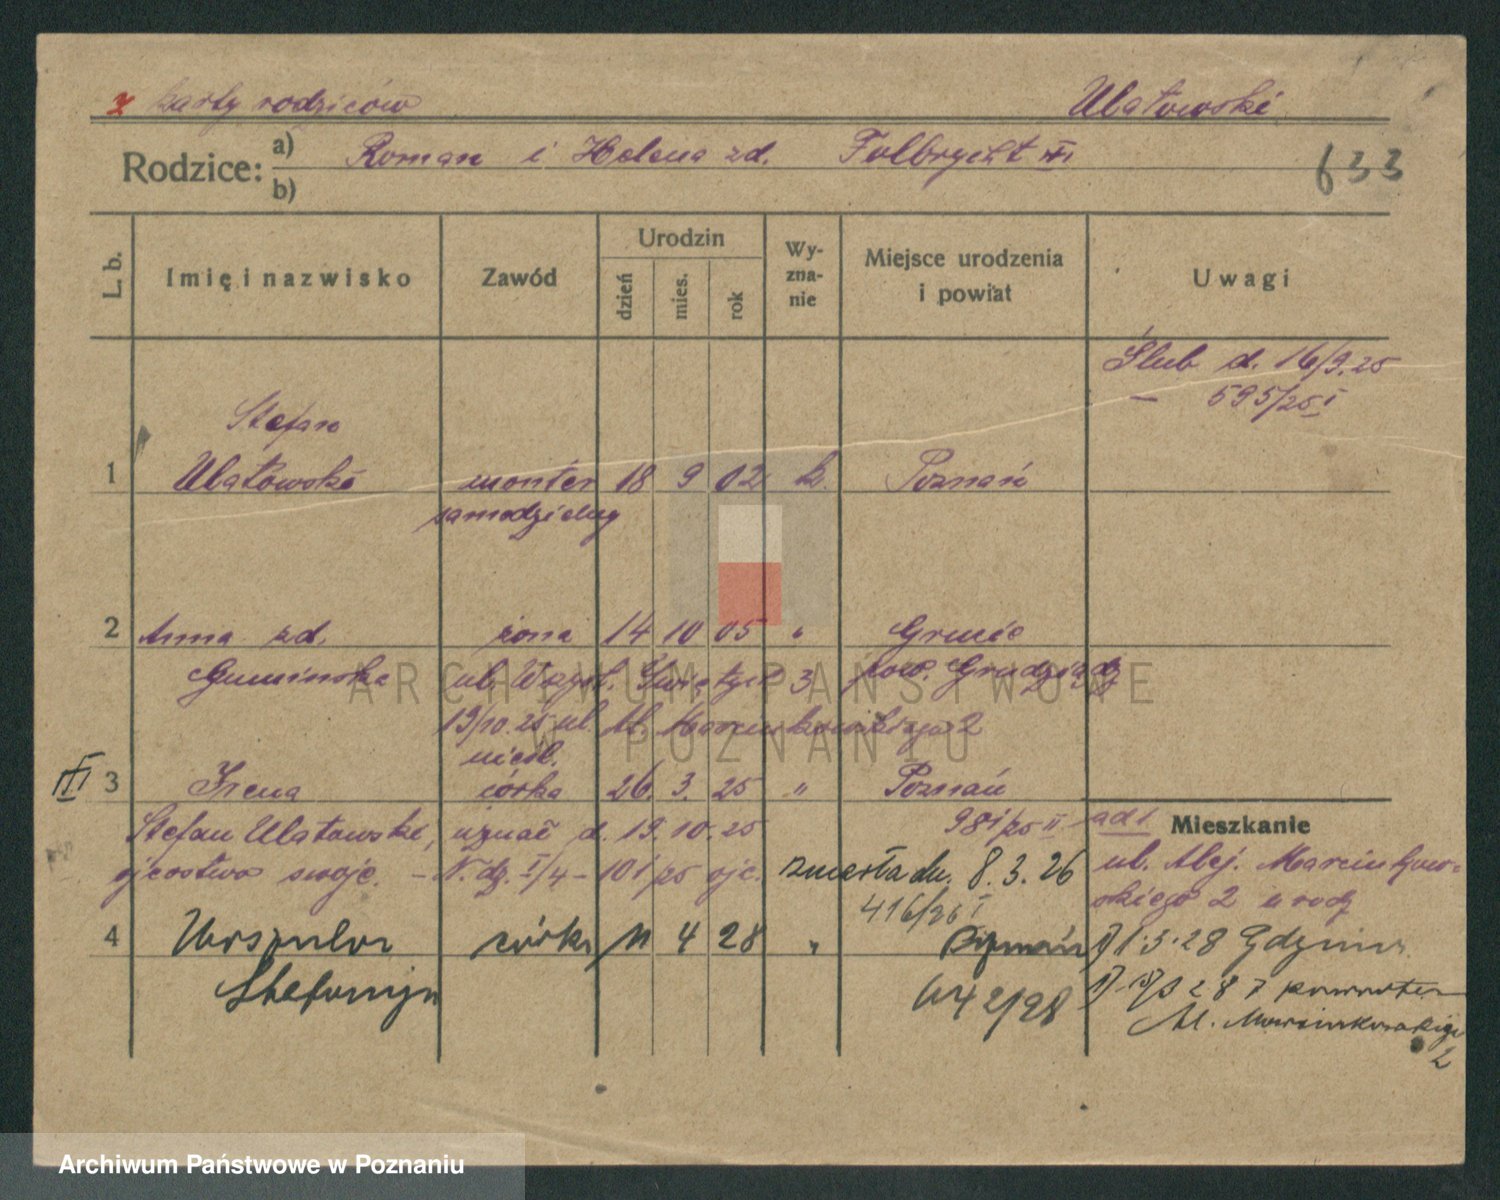 z karty rodziców Ulatowski
Rodzice: a) Roman i Helena zd. Folbrycht III
b) 633
L. b. Imię i nazwisko Zawód Urodzin dzień mies. rok Wyznanie Miejsce urodzenia i powiat Uwagi
Ślub d. 16/9.25
— 595/25 I
Stefan
1 Ulatowski monter 18 9 02 k. Poznań
samodzielny
2 Anna zd. żona 14 10 05 " Grucie
Gumińska ul. Wszyst. Świętych 3 pow. Grudziądz
19/10.25 ul. Al. Marcinkowskiego 2
nieśl.
III 3 Irena córka 26. 3. 25 " Poznań
Stefan Ulatowski, uznał d. 19.10.25 981/25 II ad 1. Mieszkanie
ojcostwo swoje. — N. dz. I/4 – 101/25 ojc. zmarła dn. 8.3.26 ul. Alej. Marcinkow-
416/26 I skiego 2 u rodz
4 Urszula córka 11 4 28 " Poznań 1.3.28 Gdynia
Stefanija 642/28
Al. Marcinkowskiego
2
ARCHIWUM PAŃSTWOWE
W POZNANIU
Archiwum Państwowe w Poznaniu